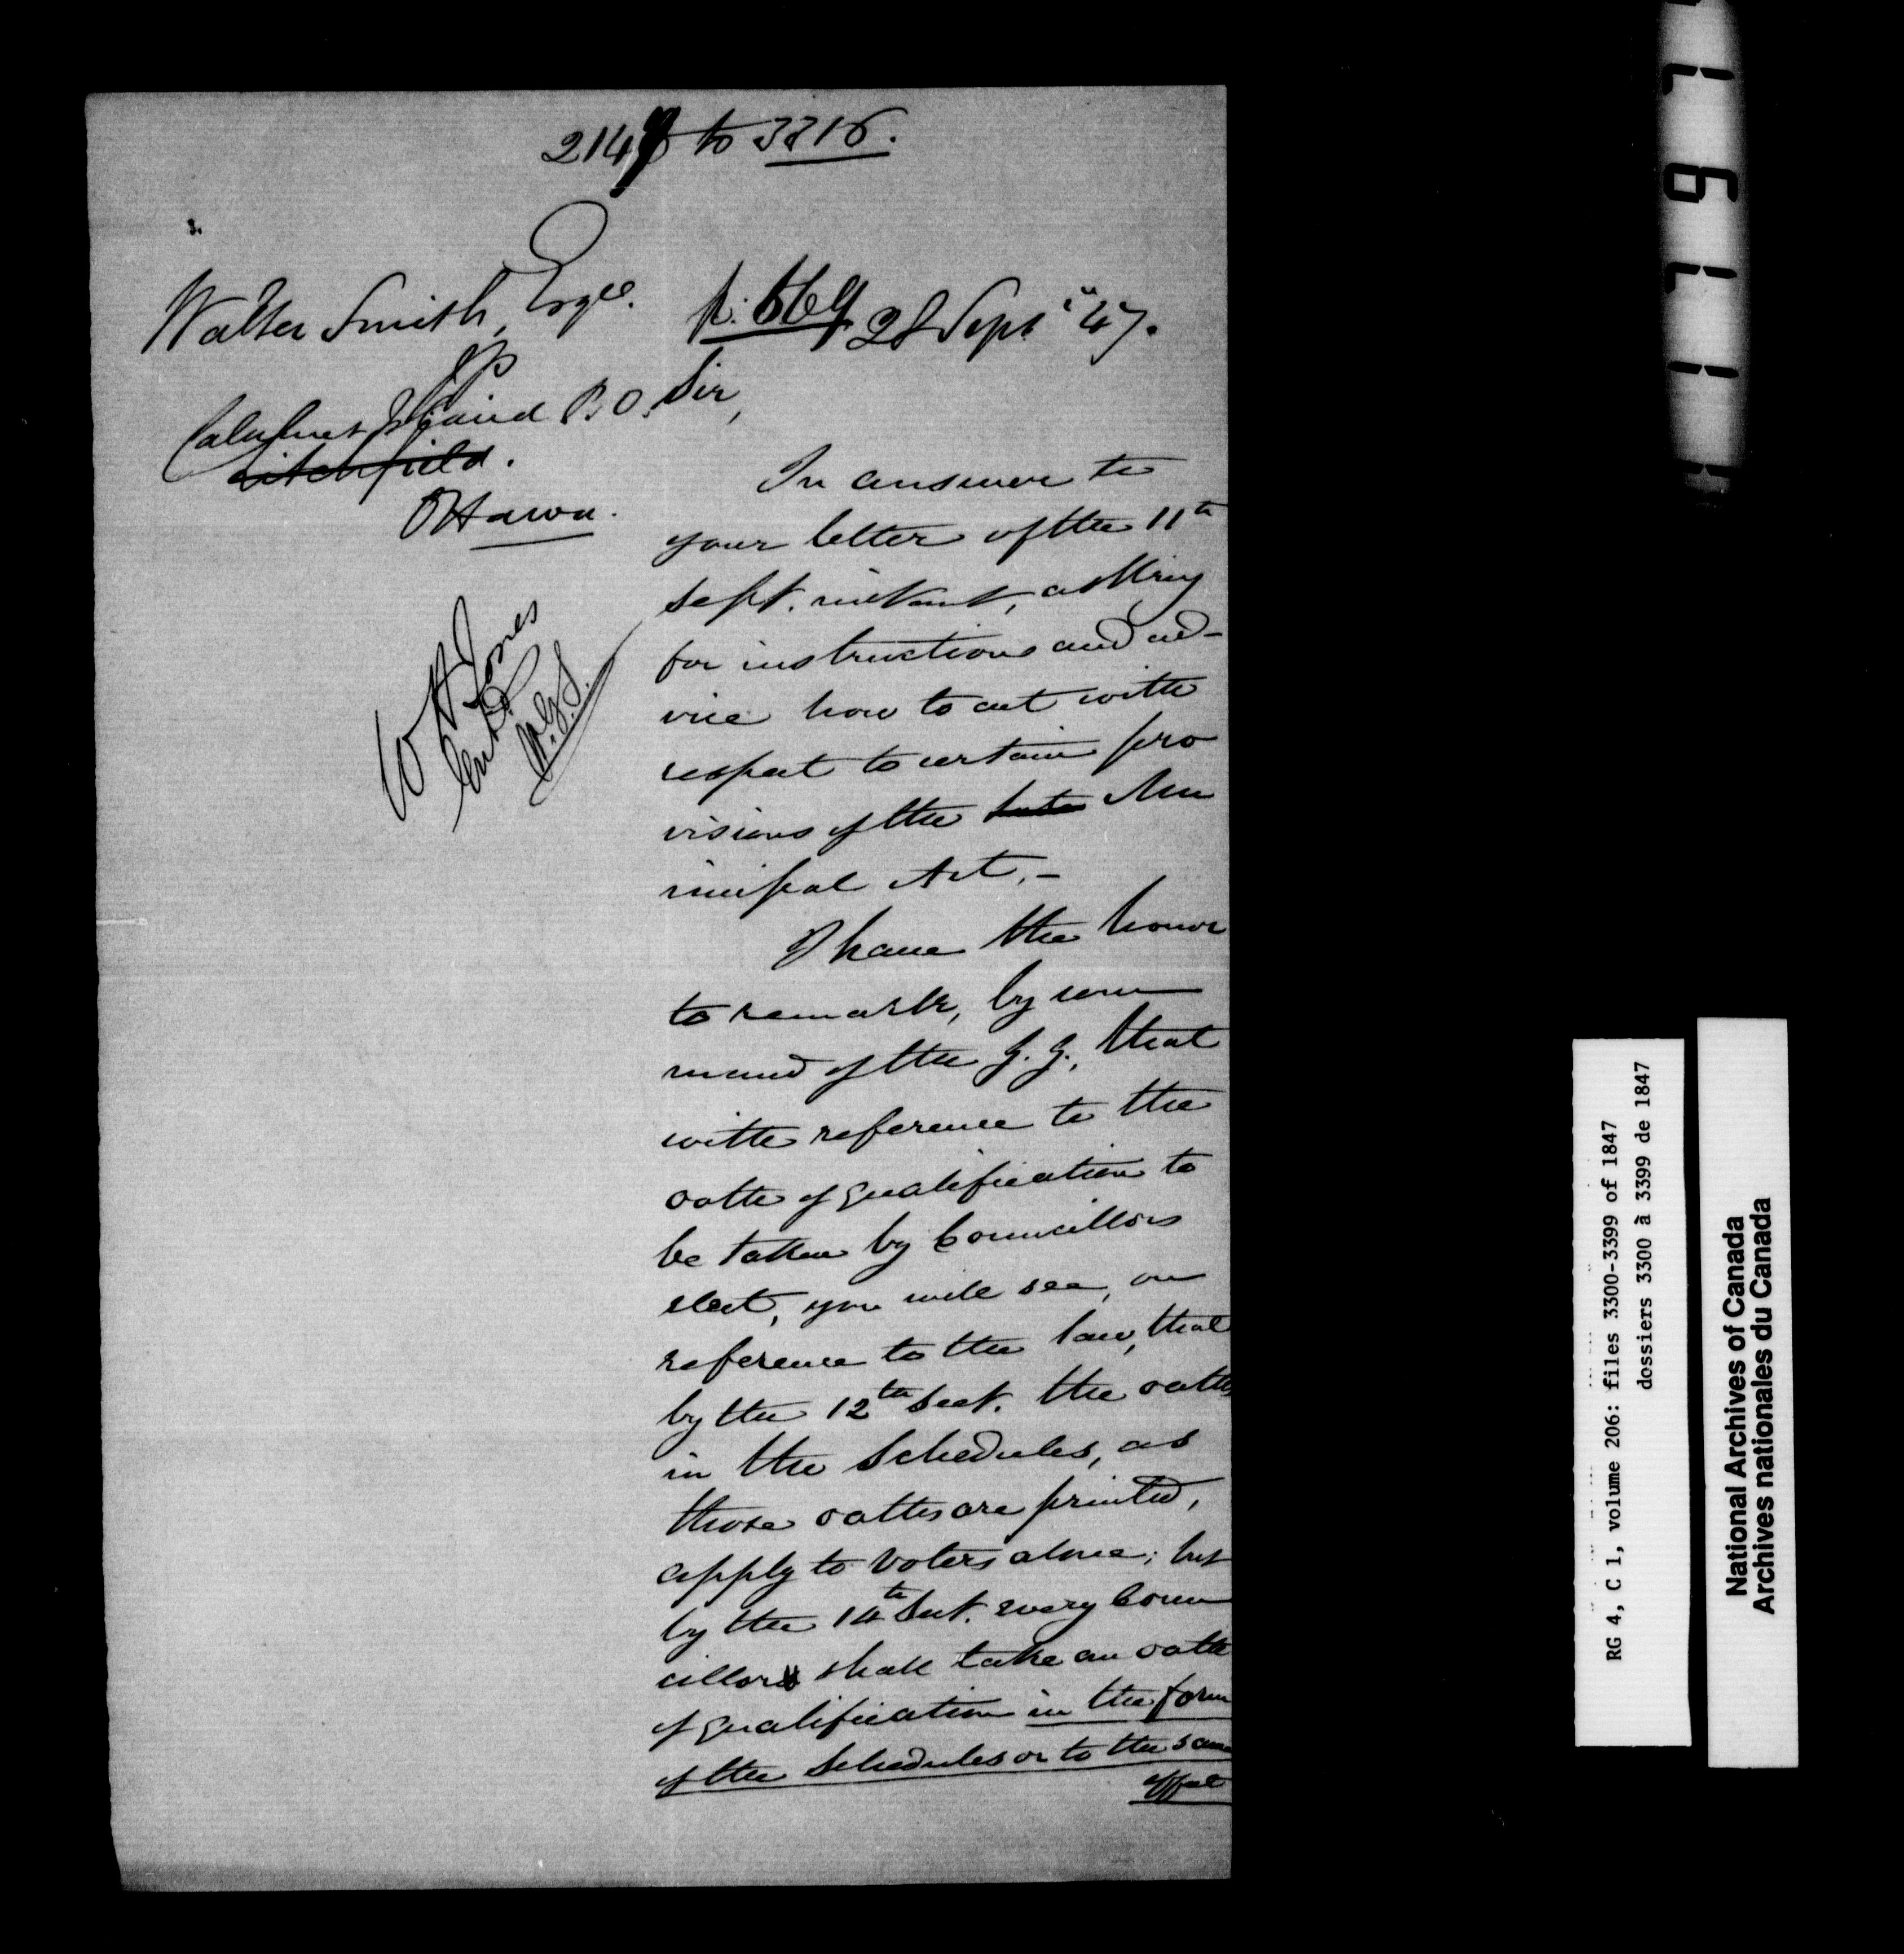 to 3316.
Walter Smith, Esqre.
JP
Calumet Island P.O.
Litchfield.
Ottawa.
28 Sept "47.
Sir,
In answer to
your letter of the 11th
Sept. instant, asking
for instructions and ad-
vice how to act with
respect to certain pro
visions of the Mu
nicipal Act,-
I have the honor
to remark, by com
mand of the G. G., that
with reference to the
oath of qualification to
be taken by Councillors
elect, you will see, on
reference to the law, that
by the 12th Sect. the oaths
in the Schedules, as
those oaths are printed,
apply to voters alone; but
by the 14th Sect. every Coun
cillor shall take an oath
of qualification in the form
of the Schedules or to the same
effect
National Archives of Canada
Archives nationales du Canada
RG 4, C 1, volume 206: files 3300-3399 of 1847
dossiers 3300 à 3399 de 1847